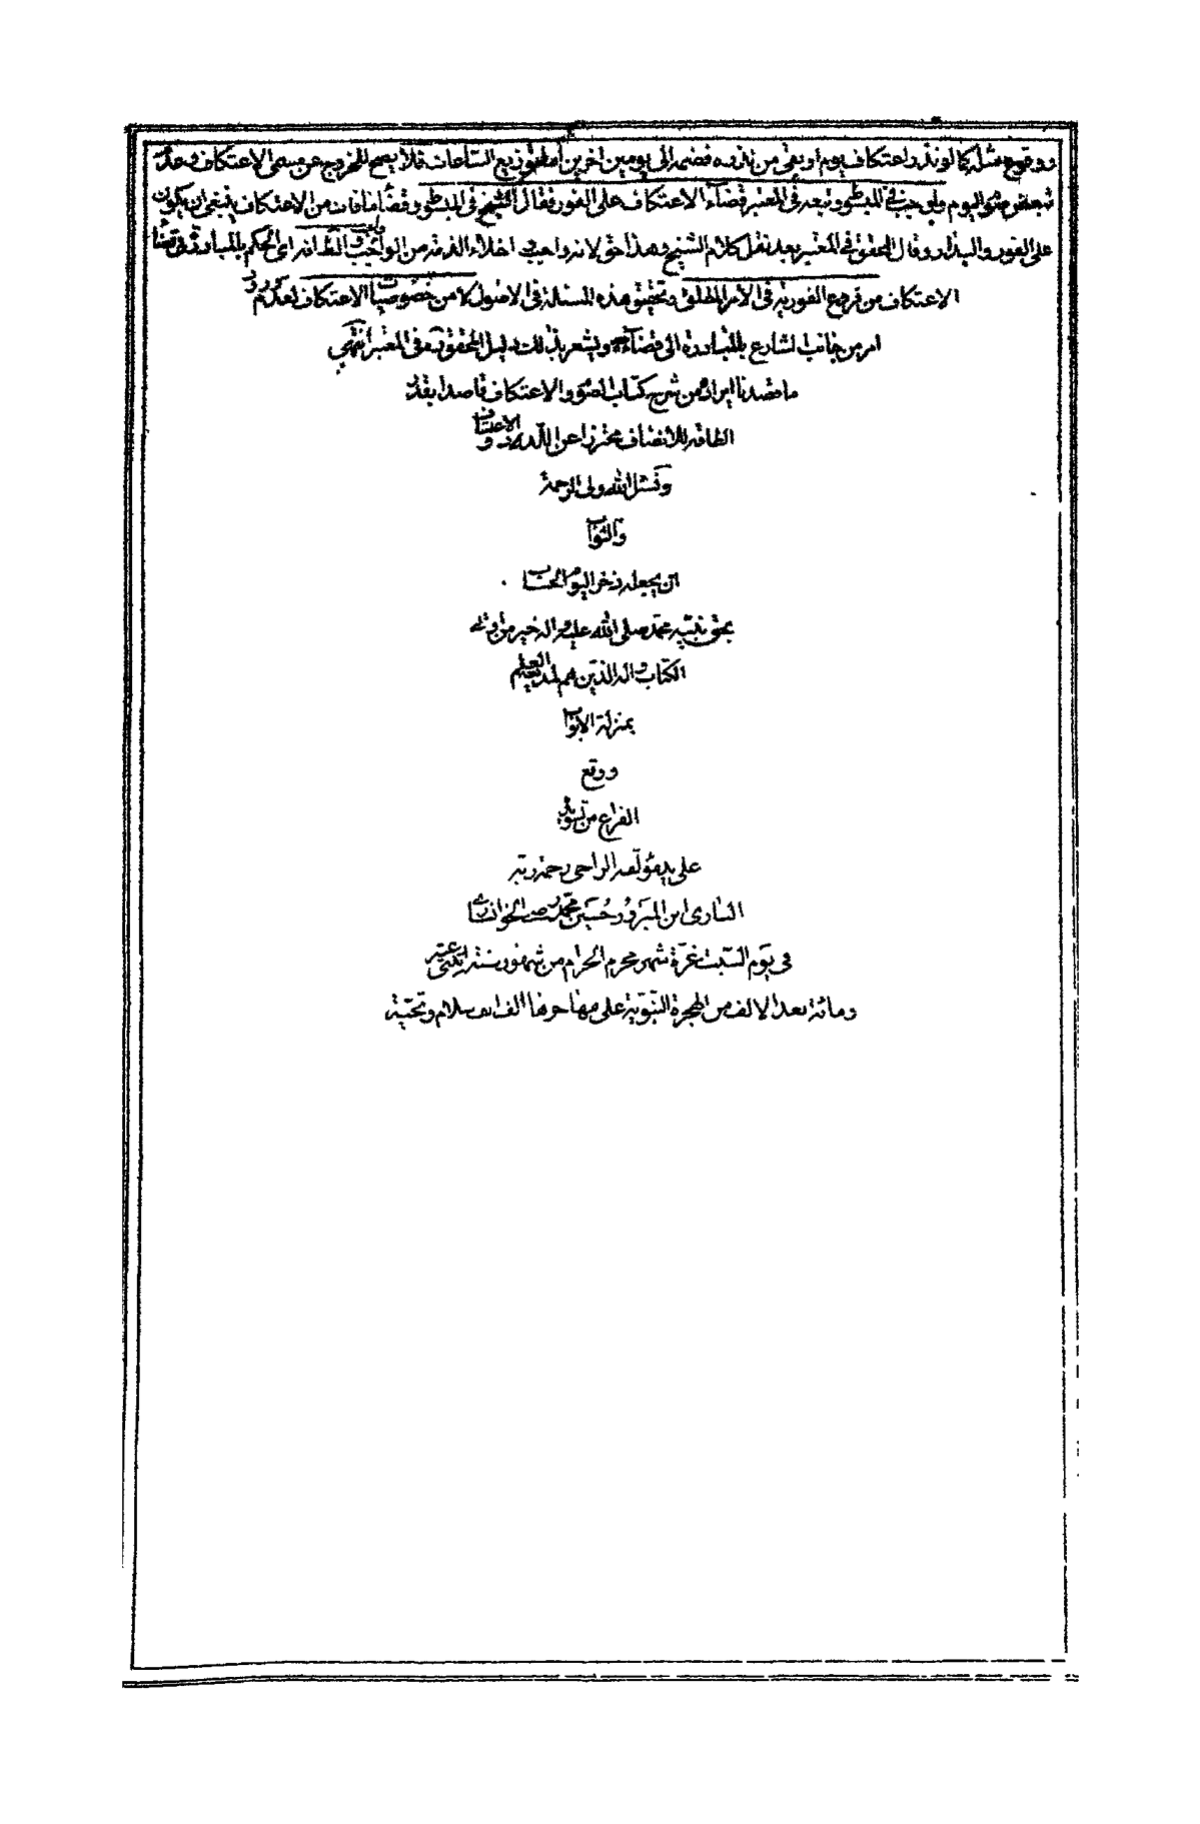 ووقوع مثله كما لو نذر اعتكاف يوم او بقى من نذره فضمه الى يومين اخرين اما توزيع الساعات فلا يصح للخروج عن مسمى الاعتكاف وعدم
تبعض صوم اليوم واوجب في المبسوط وتبعه في المعتبر قضاء الاعتكاف على الفور فقال الشيخ في المبسوط وقضاء ما فات من الاعتكاف ينبغى ان يكون
على الفور والبدار وقال المحقق في المعتبر بعد نقل كلام الشيخ وهذا حق لانه واجب اخلاء الذمة من الواجب واجب الظاهر ان الحكم بالمبادرة في قضاء
الاعتكاف من فروع الفورية في الامر المطلق وتحقيق هذه المسئلة في الاصول لا من خصوصيات الاعتكاف لعدم ورود
امر من جانب الشارع بالمبادرة الى قضائه ويشعر بذلك دليل المحقق في المعتبر انتهى
ما قصدنا ايراده من شرح كتاب الصوم والاعتكاف قاصدا بقدر
الطاقة للانصاف محترزا عن اللدد والاعتساف
ونسئل الله ولى الرحمة
والثواب
ان يجعله ذخرا ليوم الحساب
بحق نبيه محمد صلى الله عليه واله خير من اوتى
الكتاب واله الذين هم لمدينة العلم
بمنزلة الابواب
ووقع
الفراغ من تسويده
على يد مؤلفه الراجى رحمة ربه
البارى ابن المبرور حسين محمد رضى الخوانسارى
في يوم السبت غرة شهر محرم الحرام من شهور سنة اثنتى عشر
ومائة بعد الالف من الهجرة النبوية على مهاجرها الف سلام وتحية